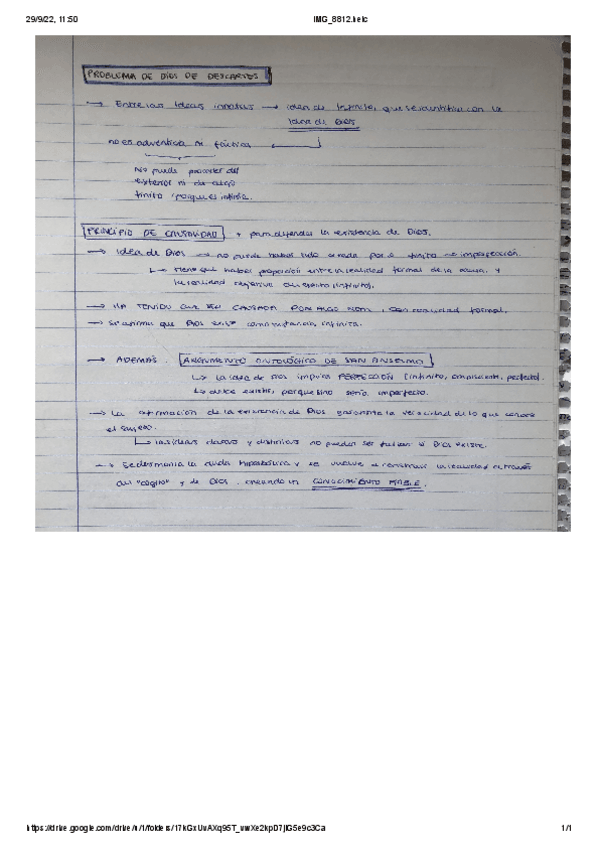 29/9/22, 11:50 IMG_8812.heic
PROBLEMA DE DIOS DE DESCARTES
→ Entre las ideas innatas → idea de infinito, que se identifica con la
idea de DIOS
no es adventicia ni facticia
No puede proceder del
exterior ni de algo
finito porque es infinita.
PRINCIPIO DE CAUSALIDAD → para defender la existencia de Dios.
→ Idea de Dios → no puede haber sido creada por lo finito no imperfección.
↳ tiene que haber proporción entre la realidad formal de la causa, y
la realidad objetiva del efecto (infinito).
→ HA TENIDO QUE SER CAUSADA POR ALGO REAL, con realidad formal,
→ Se afirma que Dios existe como sustancia infinita.
→ ADEMÁS: ARGUMENTO ONTOLÓGICO DE SAN ANSELMO
↳ La idea de Dios implica PERFECCIÓN (infinito, omnisciente, perfecto).
↳ debe existir, porque sino sería imperfecto.
→ La afirmación de la existencia de Dios garantiza la veracidad de lo que conoce
el sujeto.
↳ las ideas claras y distintas no pueden ser falsas si Dios existe.
→ Se desmonta la duda hiperbólica y se vuelve a construir la realidad a través
del "cogito" y de Dios, creando un CONOCIMIENTO FIABLE.
1/1